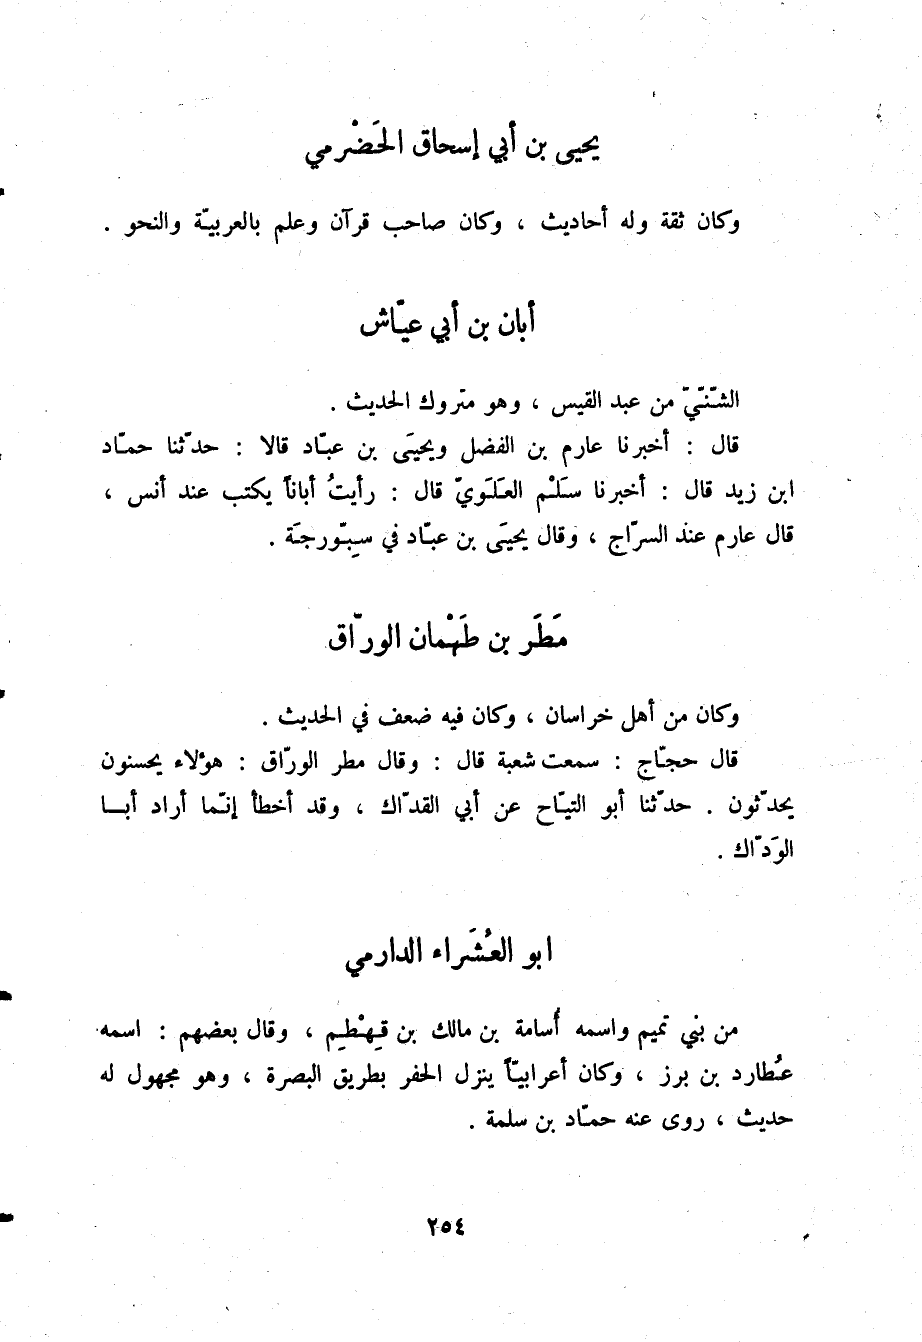 يحيى بن أبي إسحاق الحَضْرمي
وكان ثقة وله أحاديث ، وكان صاحب قرآن وعلم بالعربيّة والنحو .
أبان بن أبي عيّاش
الشّنّيّ من عبد القيس ، وهو متروك الحديث .
قال : أخبرنا عارم بن الفضل ويحيَى بن عبّاد قالا : حدّثنا حمّاد
ابن زيد قال : أخبرنا سَلْم العَلَويّ قال : رأيتُ أباناً يكتب عند أنس ،
قال عارم عند السرّاج ، وقال يحيَى بن عبّاد في سبّورجَة .
مَطَر بن طَهْمان الورّاق
وكان من أهل خراسان ، وكان فيه ضعف في الحديث .
قال حجّاج : سمعت شعبة قال : وقال مطر الورّاق : هؤلاء يحسنون
يحدّثون . حدّثنا أبو التيّاح عن أبي القدّاك ، وقد أخطأ إنّما أراد أبا
الوَدّاك .
ابو العُشَراء الدارمي
من بني تميم واسمه أُسامة بن مالك بن قِهْطِم ، وقال بعضهم : اسمه
عُطارد بن برز ، وكان أعرابيّاً ينزل الحفر بطريق البصرة ، وهو مجهول له
حديث ، روى عنه حمّاد بن سلمة .
٢٥٤